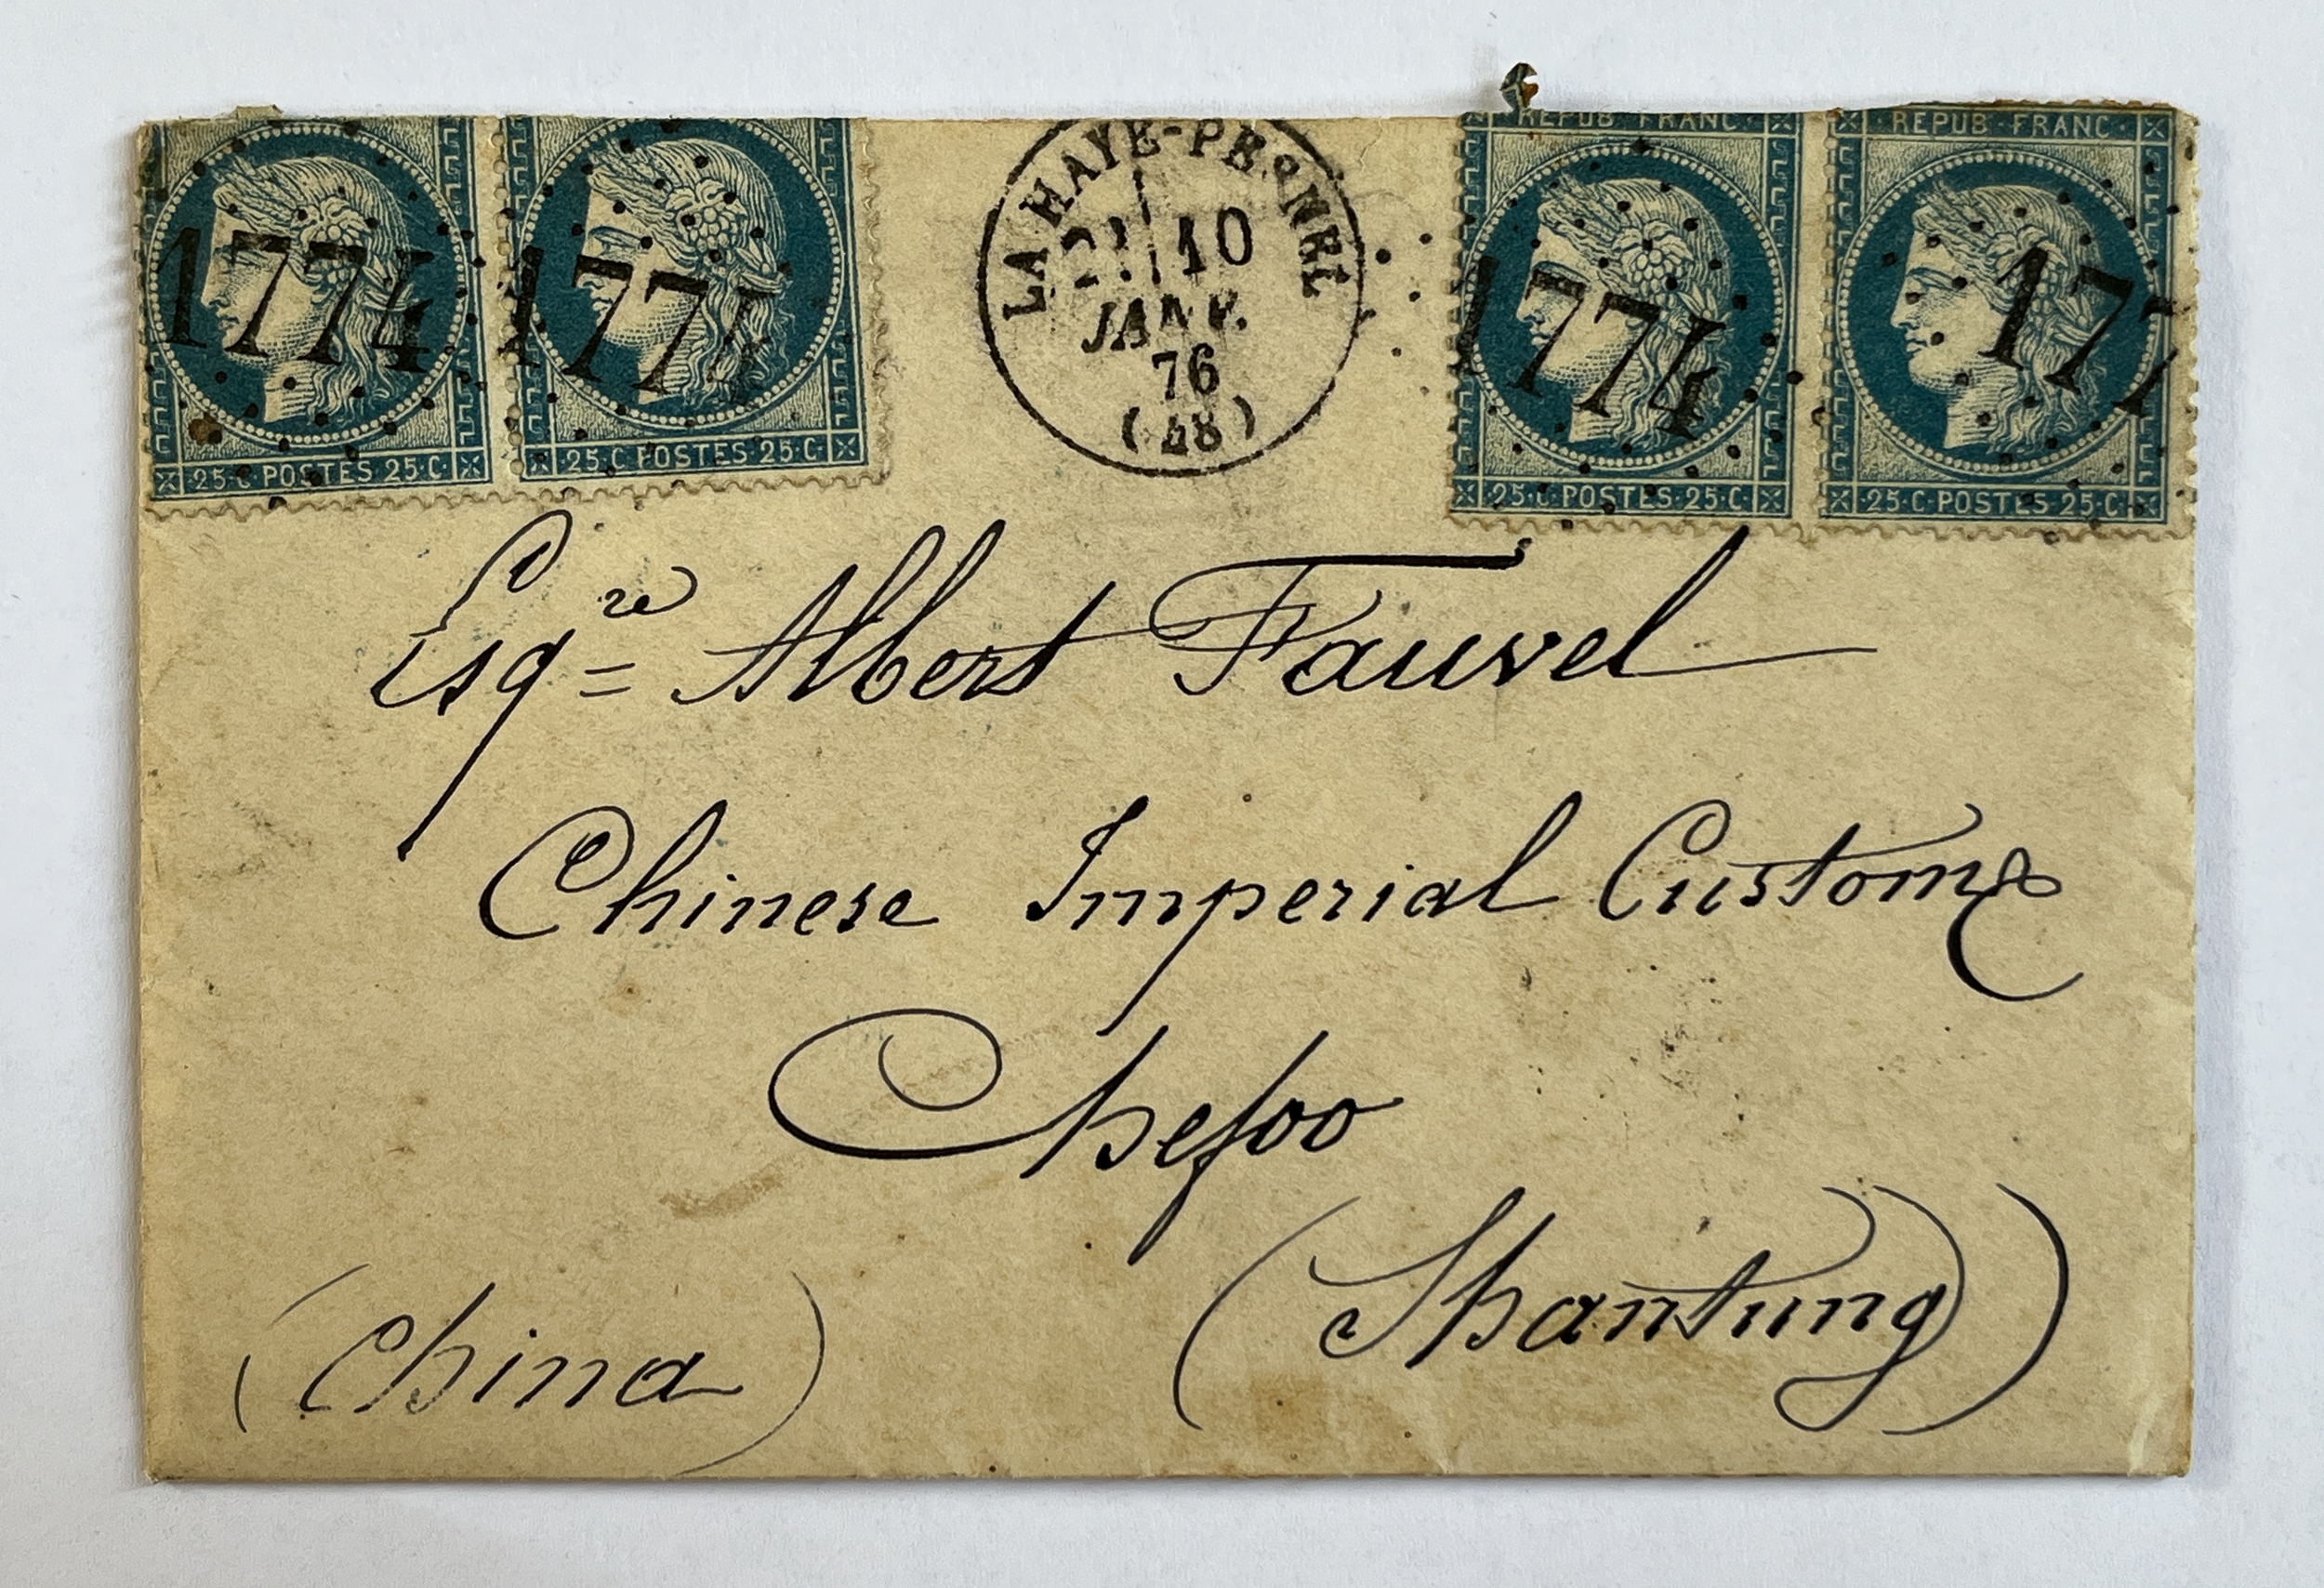 REPUB·FRANC·
REPUB·FRANC·
1774
1774
1774
177
25·C·POSTES·25·C·
25·C·POSTES·25·C·
25·C·POSTES·25·C·
25·C·POSTES·25·C·
LA HAYE-PESNEL
10
JANV.
76
(48)
Esqre Albert Fauvel
Chinese Imperial Customs
Chefoo
(Shantung)
(China)